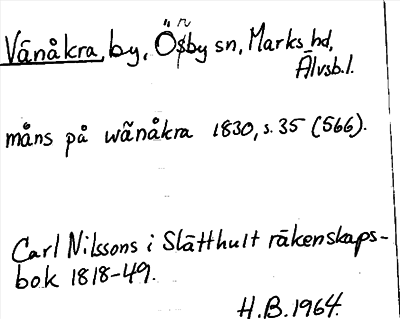 Vänåkra, by, Öńby sn, Marks hd,
Älvsb.l.
måns på wänåkra 1830, s. 35 (566).
Carl Nilssons i Slätthult räkenskaps-
bok 1818-49.
H.B. 1964.